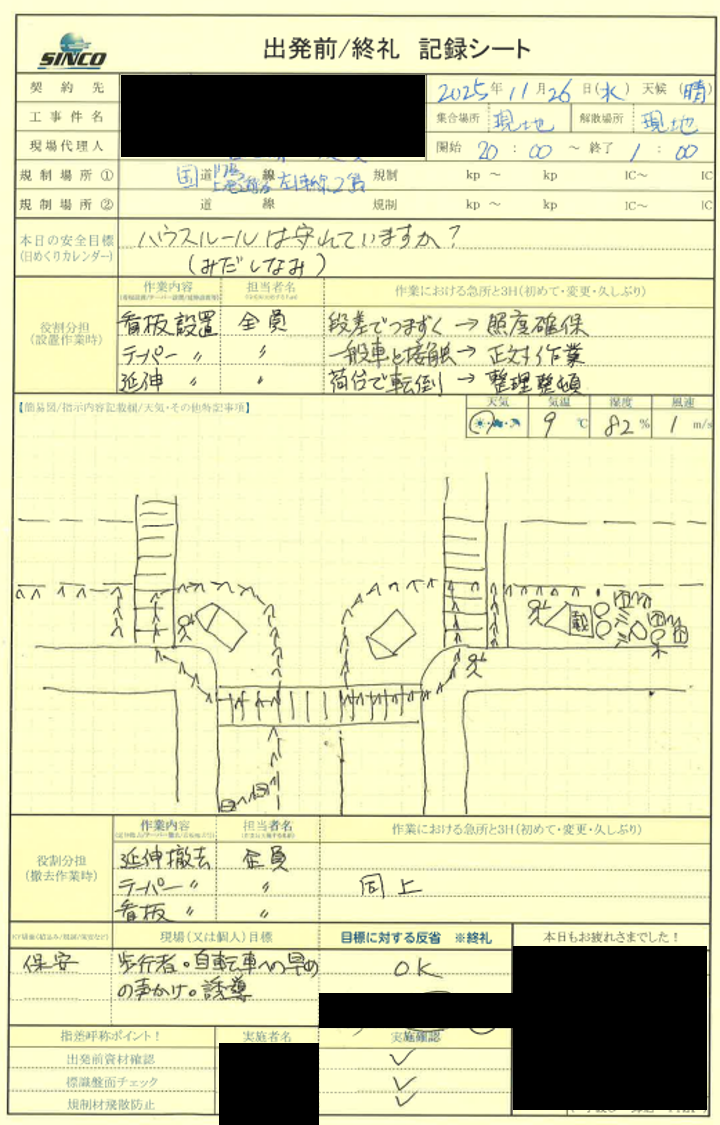 SINCO
出発前/終礼 記録シート
契約先
2025年 11月 26日(水) 天候(晴)
工事件名
集合場所 現地 解散場所 現地
現場代理人
開始 20:00 ～ 終了 1:00
規制場所① 国道 線 左車線 規制 kp ～ kp IC～ IC
規制場所② 道 線 規制 kp ～ kp IC～ IC
本日の安全目標
(日めくりカレンダー)
ハウスルールは守れていますか?
(みだしなみ)
役割分担
(設置作業時)
作業内容 担当者名 作業における急所と3H(初めて・変更・久しぶり)
看板設置 全員 段差でつまずく → 照度確保
テーパー 〃 〃 一般車と接触 → 正対作業
延伸 〃 〃 荷台で転倒 → 整理整頓
【簡易図/指示内容記載欄/天気・その他特記事項】
天気 気温 湿度 風速
9℃ 82% 1m/s
載
役割分担
(撤去作業時)
作業内容 担当者名 作業における急所と3H(初めて・変更・久しぶり)
延伸撤去 全員
テーパー 〃 〃 同上
看板 〃 〃
現場(又は個人)目標 目標に対する反省 ※終礼 本日もお疲れさまでした!
保安 歩行者。自転車への早め
の声かけ。誘導
OK
指差呼称ポイント! 実施者名 実施確認
出発前資材確認 ✓
標識盤面チェック ✓
規制材飛散防止 ✓